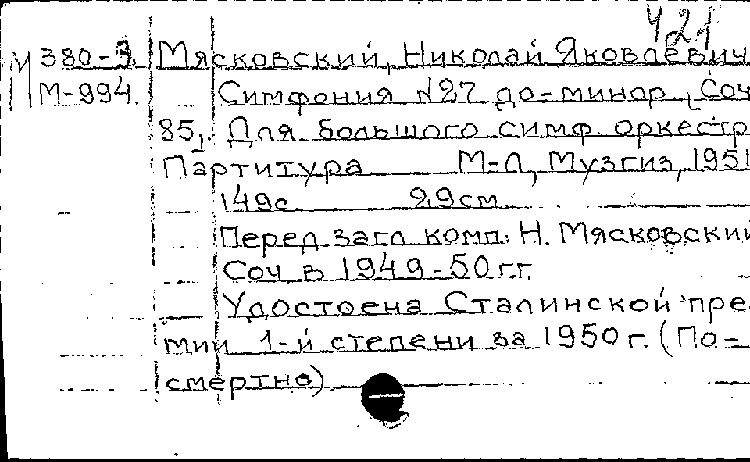 421
М 380-3 Мясковский, Николай Яковлевич
М-994. Симфония №27 до-минор, Соч
85, Для большого симф оркестр
Партитура М-Л, Музгиз, 1951
149с 29см
Перед загл комп. Н. Мясковский
Соч в 1949-50 гг.
Удостоена Сталинской пре-
мии 1-й степени за 1950 г. (По-
смертно)